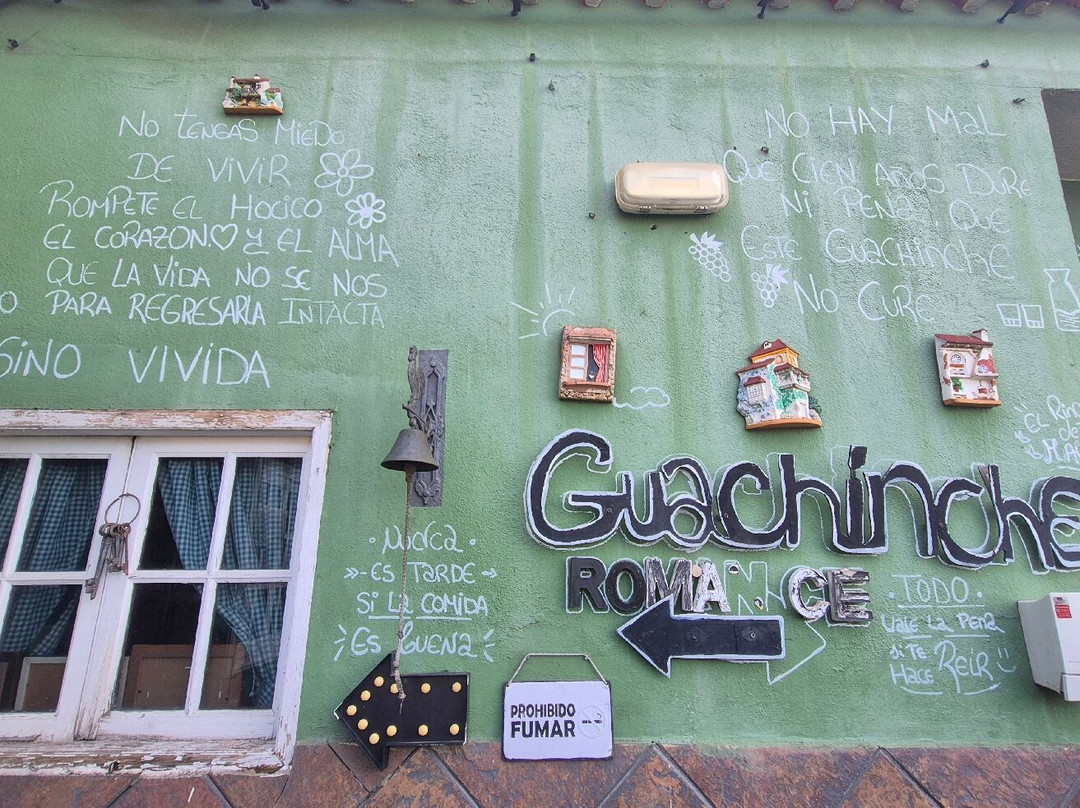 No tengas Miedo
DE VIVIR
ROMPETE EL HOCICO
EL CORAZON Y EL ALMA
QUE LA VIDA NO SE NOS
O PARA REGRESARLA INTACTA
SINO VIVIDA
NO HAY MAL
QUE CIEN AÑOS DURE
Ni PENA, QUE
Este Guachinche
No CURE
El
de
Guachinche
ROMANCE
· Nunca ·
ES TARDE
Si LA COMIDA
Es Buena
· TODO ·
Vale La Pena
si Te
Hace ReiR
PROHIBIDO
FUMAR